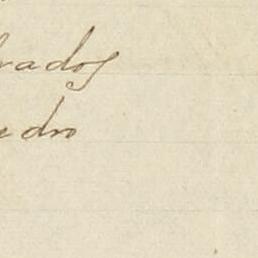 rados
edro